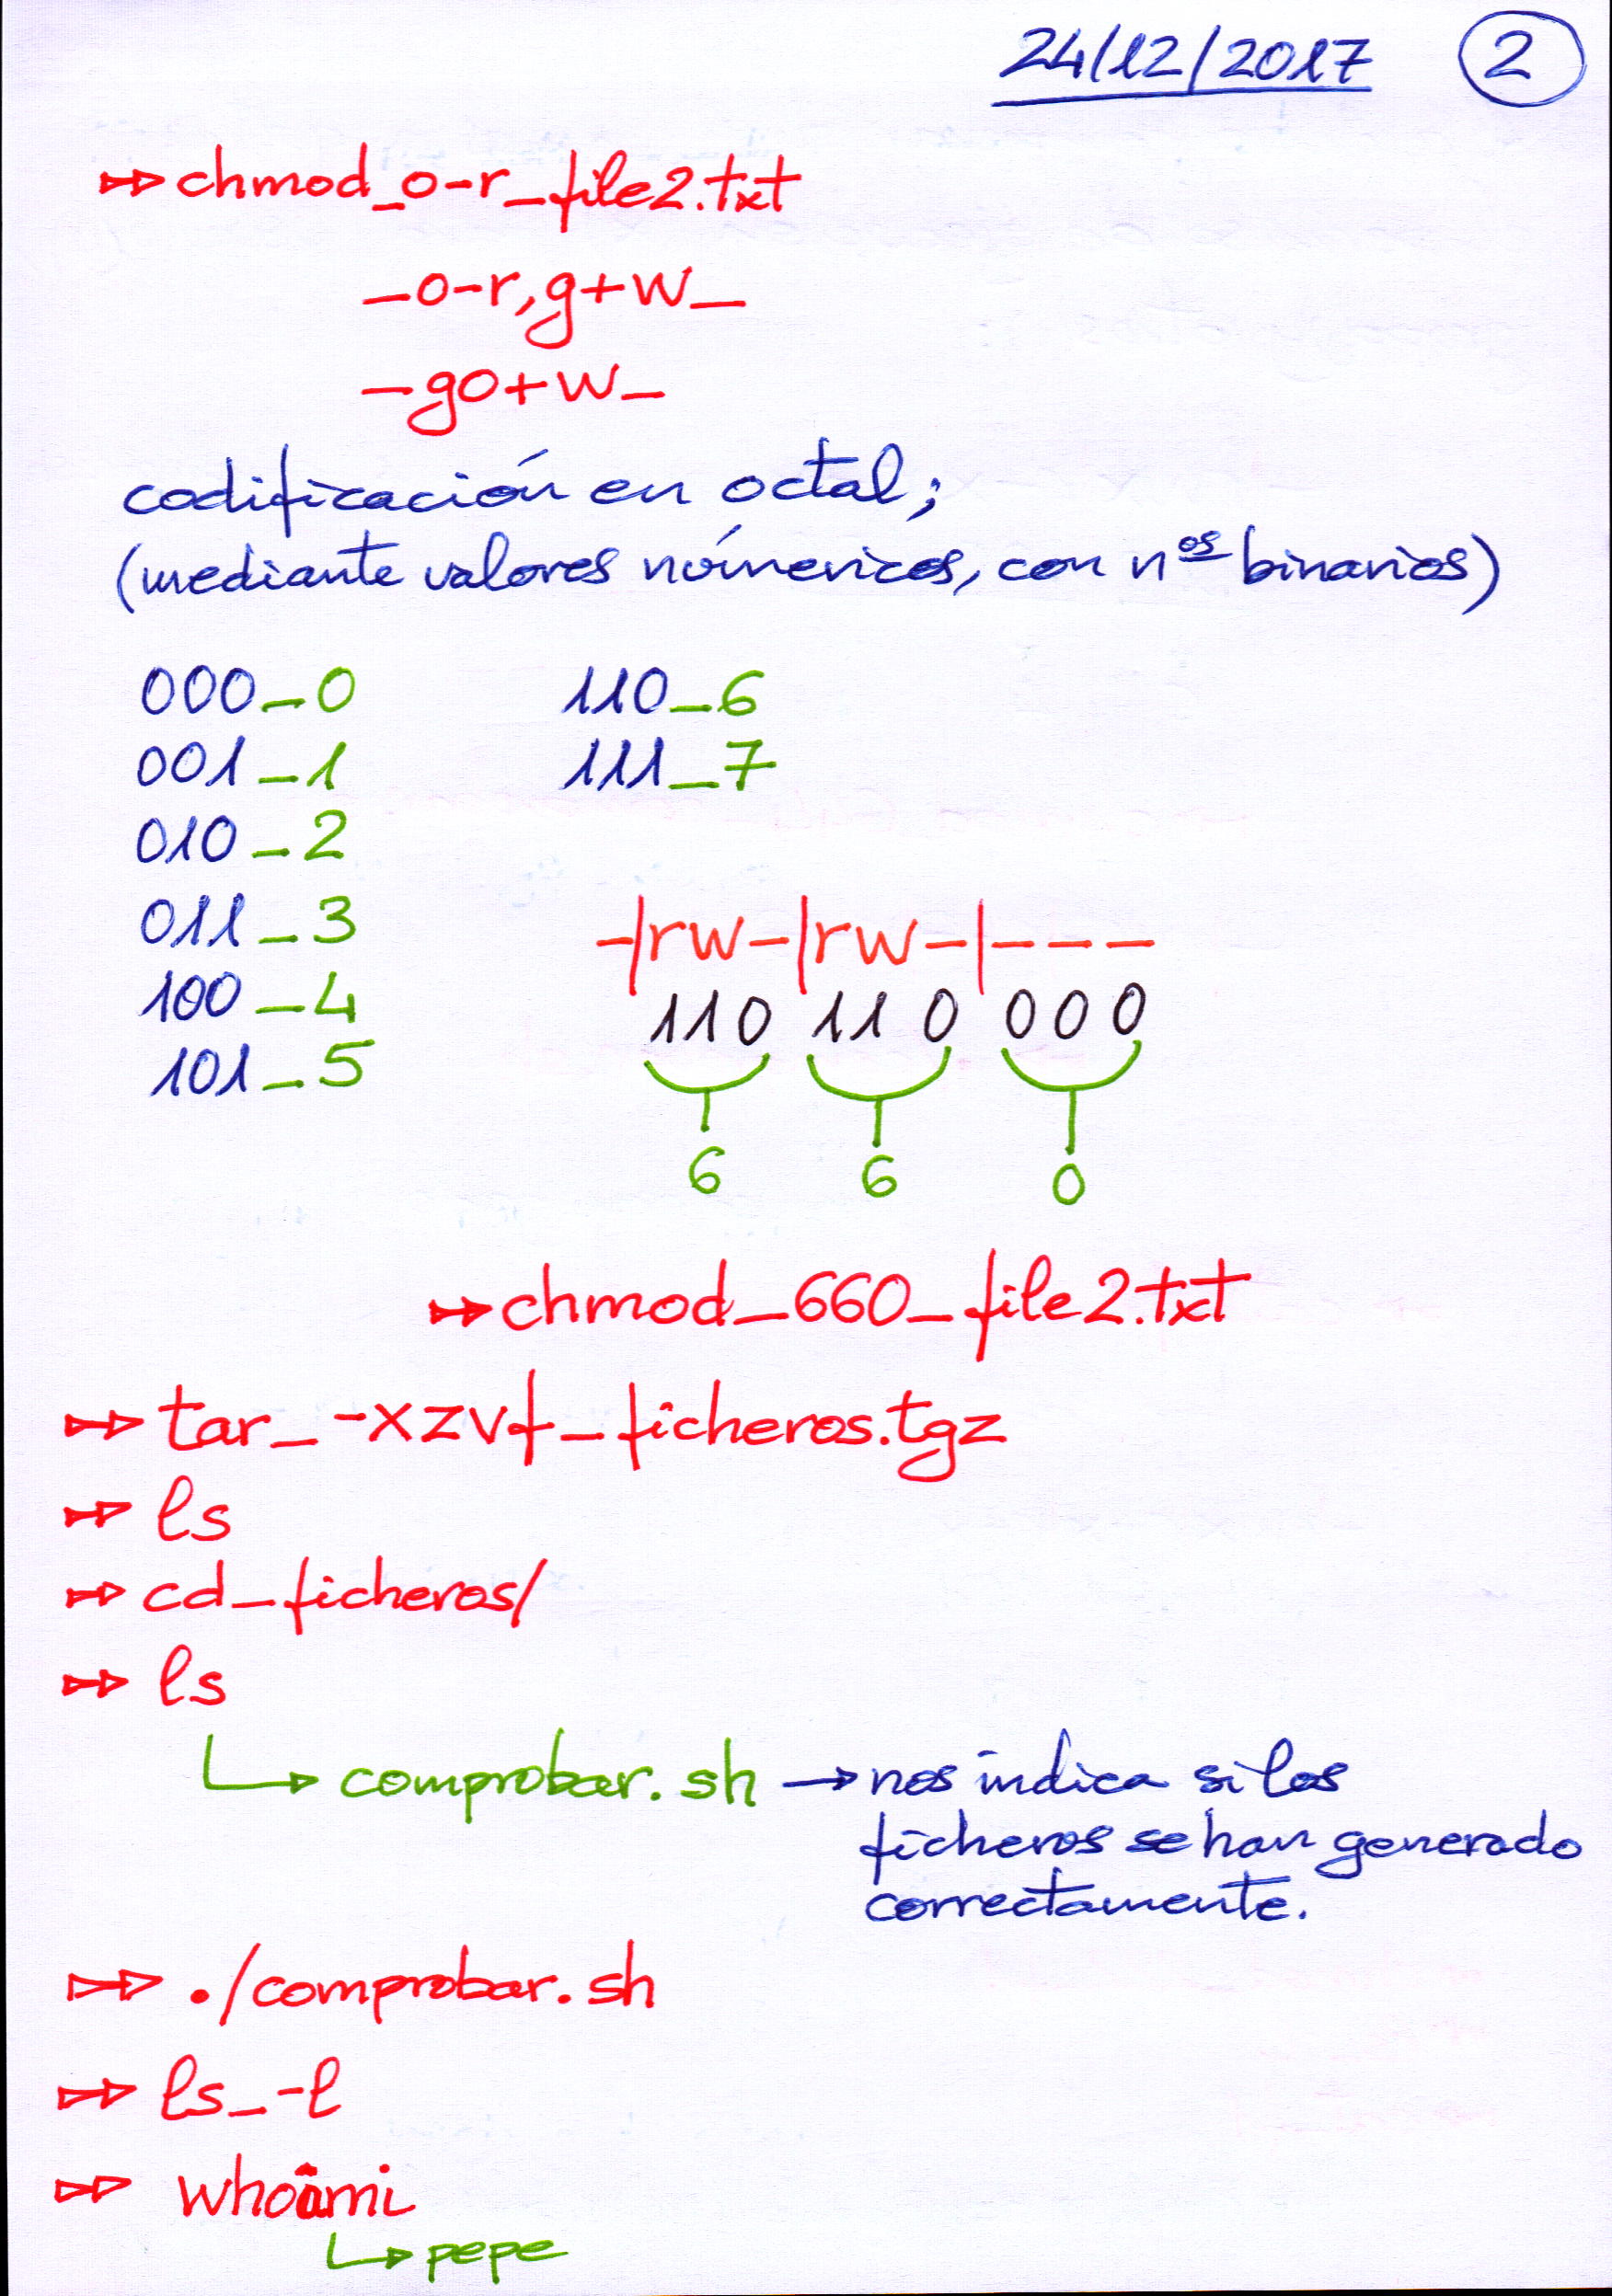 24/12/2017 2
chmod_o-r_file2.txt
_o-r,g+w_
_go+w_
codificación en octal;
(mediante valores númericos, con nºs binarios)
000_0 110_6
001_1 111_7
010_2
011_3
100_4
101_5
-|rw-|rw-|---
110 110 000
6 6 0
chmod_660_file2.txt
tar_-xzvf_ficheros.tgz
ls
cd_ficheros/
ls
comprobar.sh → nos indica si los
ficheros se han generado
correctamente.
./comprobar.sh
ls_-l
whoami
pepe